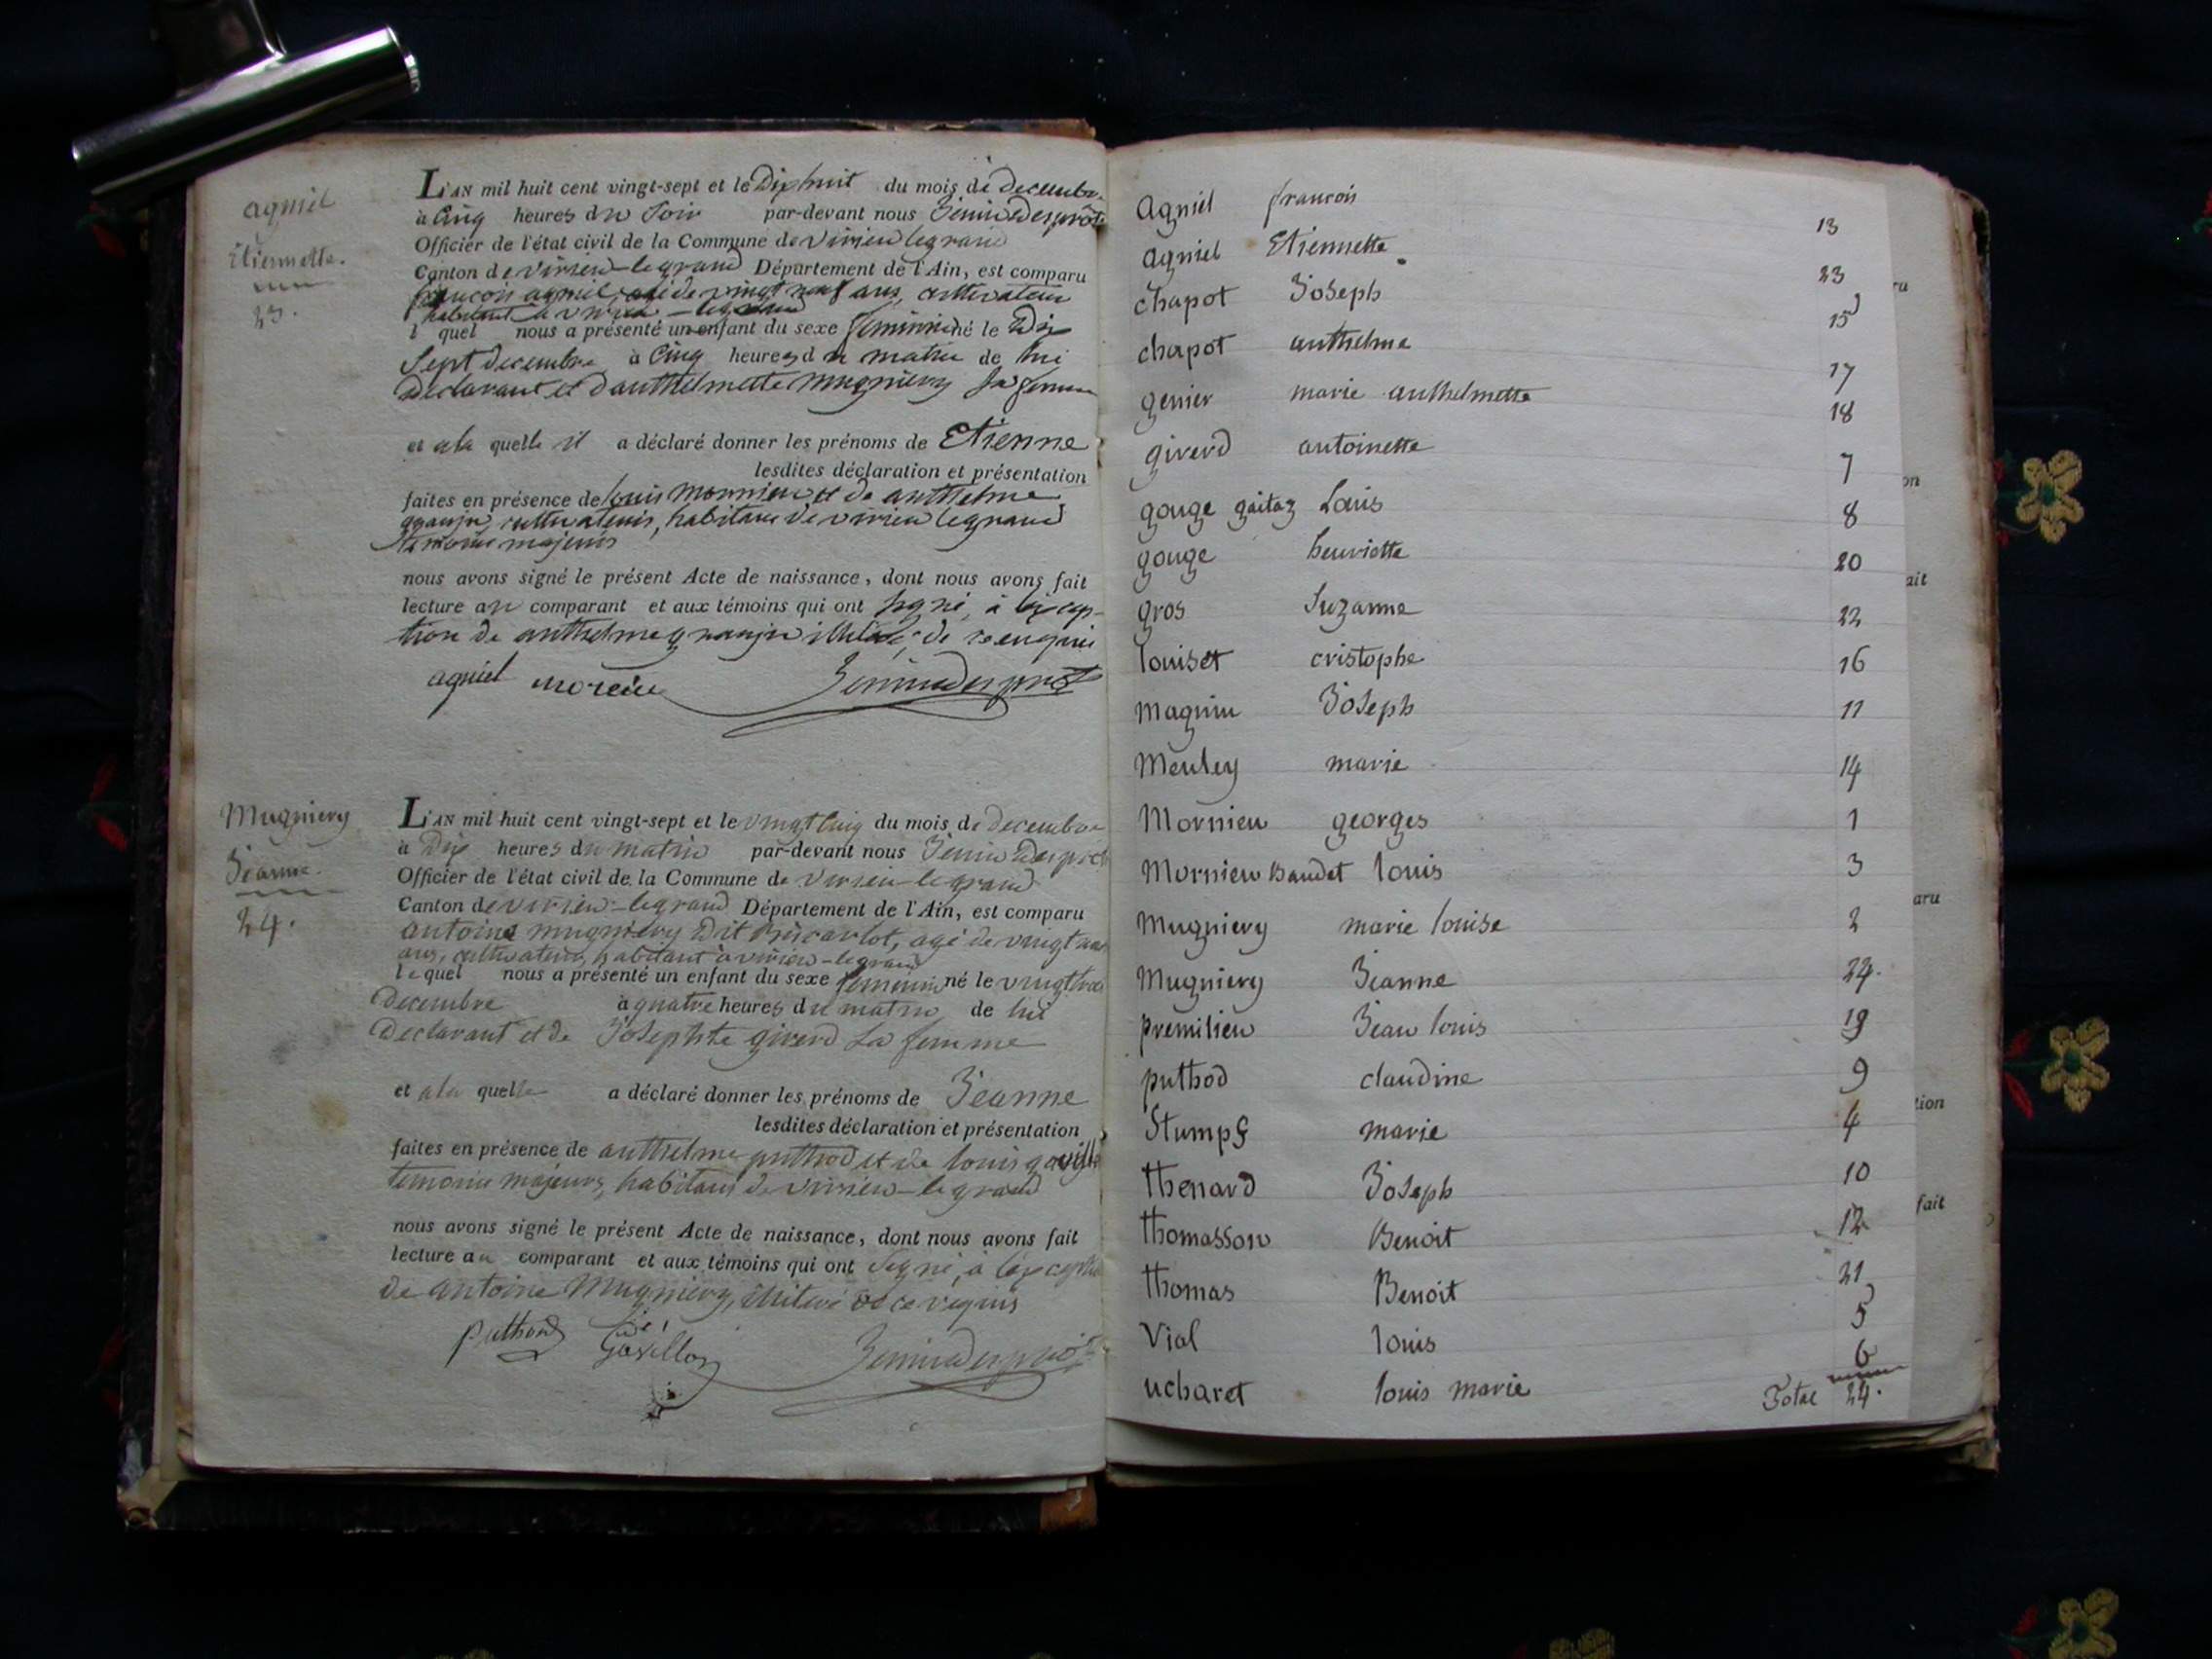 agniel
Etiennette.
23.
L'AN mil huit cent vingt-sept et le Dix huit du mois de decembre
à Cinq heures du Soir par-devant nous
Officier de l'état civil de la Commune de virieu legrand
Canton de virieu-legrand Département de l'Ain, est comparu
francois agniel, agé de vingt neuf ans, cultivateur
habitant a virieu-legrand
lequel nous a présenté un enfant du sexe feminin né le Dix
Sept decembre à Cinq heures du matin de lui
Declarant et d'anthelmette Mugniery Sa femme
et ala quelle il a déclaré donner les prénoms de Etienne
lesdites déclaration et présentation
faites en présence de louis Mornieu et de anthelme
cultivateurs, habitans de virieu legrand
temoins majeurs
nous avons signé le présent Acte de naissance, dont nous avons fait
lecture au comparant et aux témoins qui ont signé, à l'excep-
tion de anthelme illiteré, de ce enquis
agniel
Mugniery
Jeanne.
24.
L'AN mil huit cent vingt-sept et le vingt Cinq du mois de decembre
à Dix heures du matin par-devant nous
Officier de l'état civil de la Commune de virieu-legrand
Canton de virieu-legrand Département de l'Ain, est comparu
antoine mugniery Dit agé de vingt
ans, cultivateur, habitant à virieu-legrand
lequel nous a présenté un enfant du sexe feminin né le vingt trois
decembre à quatre heures du matin de lui
Declarant et de Josephte giverd Sa femme
et ala quelle a déclaré donner les prénoms de Jeanne
lesdites déclaration et présentation
faites en présence de anthelme puthod et de louis
temoins majeurs, habitans de virieu-legrand
nous avons signé le présent Acte de naissance, dont nous avons fait
lecture au comparant et aux témoins qui ont Signé, à l'exception
de antoine Mugniery, illiteré de ce requis
puthod
Agniel francois 13
Agniel Etiennette. 23
chapot Joseph 15
chapot anthelme 17
genier marie anthelmette 18
giverd antoinette 7
gouge gaitaz Louis 8
gouge henriette 20
gros Suzanne 22
louiset cristophe 16
magnin Joseph 11
Meuley marie 14
Mornieu georges 1
Mornieu Baudet louis 3
Mugniery marie louise 2
Mugniery Jeanne 24.
premilieu Jean louis 19
puthod claudine 9
Stumpf marie 4
thenard Joseph 10
thomasson Benoit 12
thomas Benoit 21
Vial louis 5
ucharet louis marie 6
Total 24.
ru
on
ait
aru
tion
fait